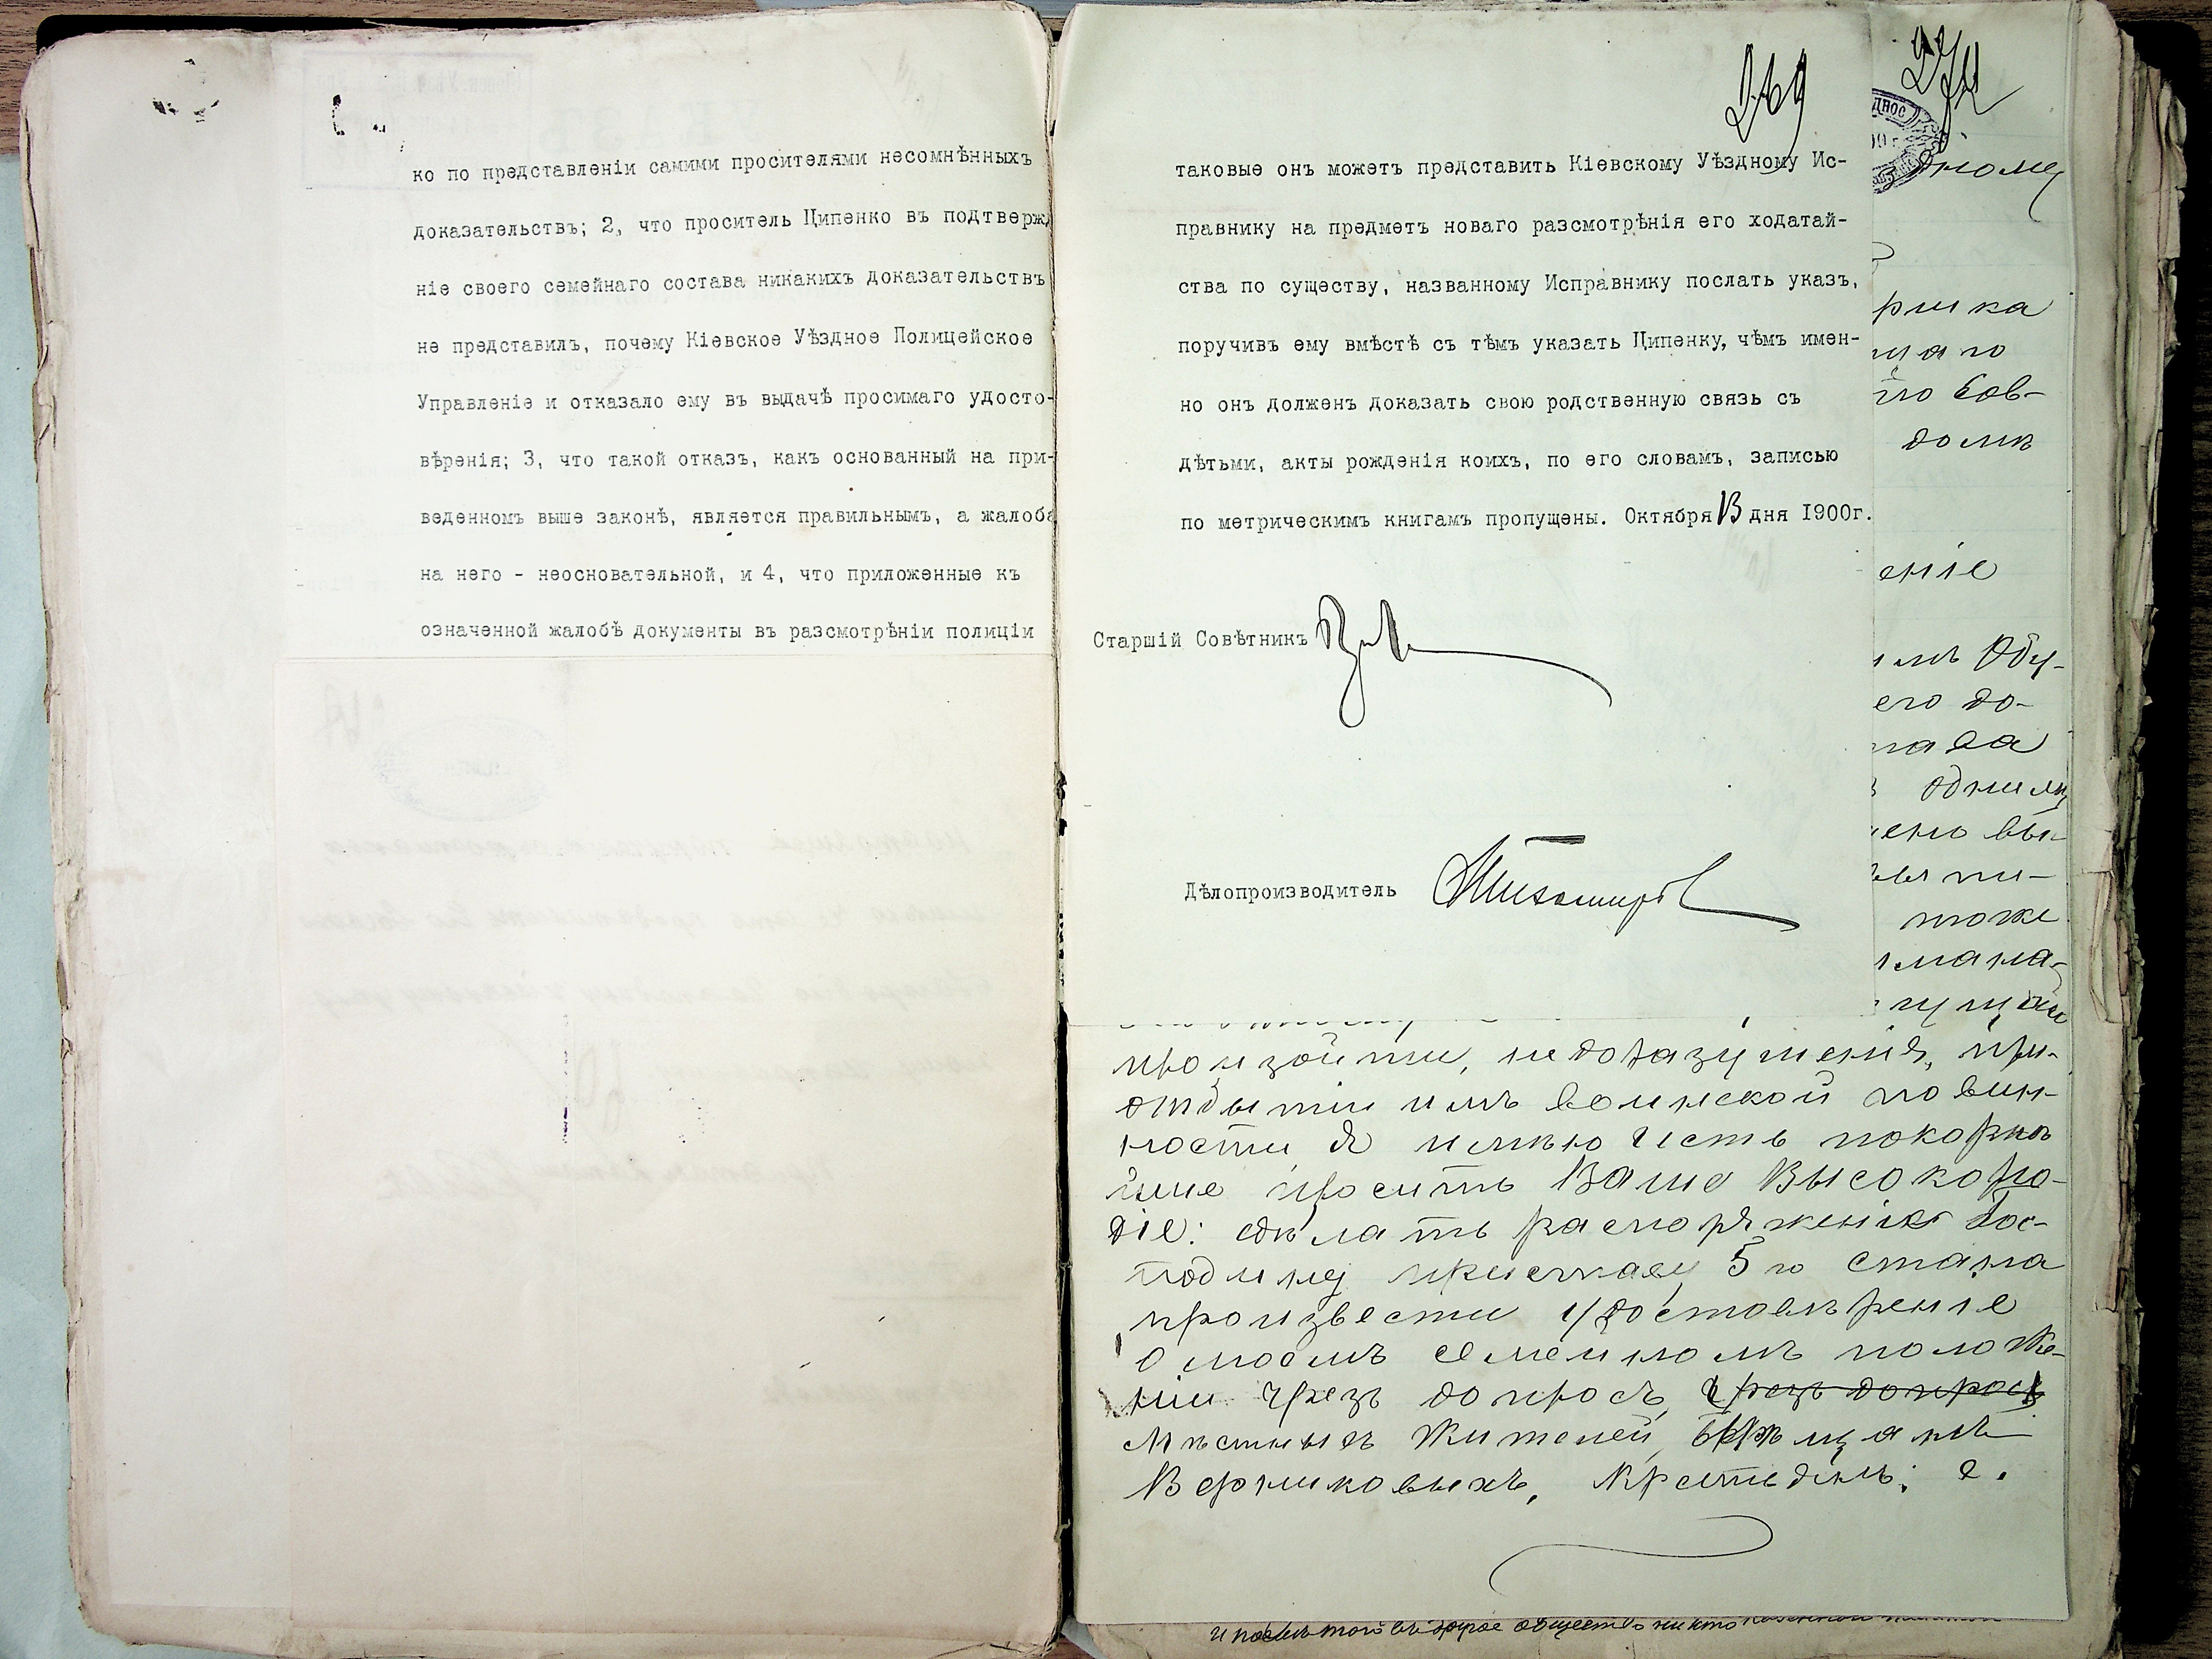 ко по представленіи самими просителями несомнѣнныхъ
доказательствъ; 2, что проситель Ципенко въ подтвержд
ніе своего семейнаго состава никакихъ доказательствъ
не представилъ, почему Кіевское Уѣздное Полицейское
Управленіе и отказало ему въ выдачѣ просимаго удосто-
вѣренія; 3, что такой отказъ, какъ основанный на при-
веденномъ выше законѣ, является правильнымъ, а жалоба
на него - неосновательной, и 4, что приложенные къ
означенной жалобѣ документы въ разсмотрѣніи полиціи
269
таковые онъ можетъ представить Кіевскому Уѣздному Ис-
правнику на предметъ новаго разсмотрѣнія его ходатай-
ства по существу, названному Исправнику послать указъ,
поручивъ ему вмѣстѣ съ тѣмъ указать Ципенку, чѣмъ имен-
но онъ долженъ доказать свою родственную связь съ
дѣтьми, акты рожденія коихъ, по его словамъ, записью
по метрическимъ книгамъ пропущены. Октября 13 дня 1900г.
Старшій Совѣтникъ
Дѣлопроизводитель
ДНОС
ному
рика
маго
домъ
еніе
его до-
одним
тоже
произойти, недоразуменія, при
отбытіи имъ воинской повин-
ности, я имѣю честь покорнѣ
йше просить Ваше Высокоро-
діе: сдѣлать распоряженія Гос-
подину приставу 5 го стана
произвести удостовѣреніе
о моемъ семейномъ положе-
ніи чрезъ допросъ, чрезъ допросъ
мѣстныхъ жителей,
крестьянъ: с.
и
въ другое общество никто